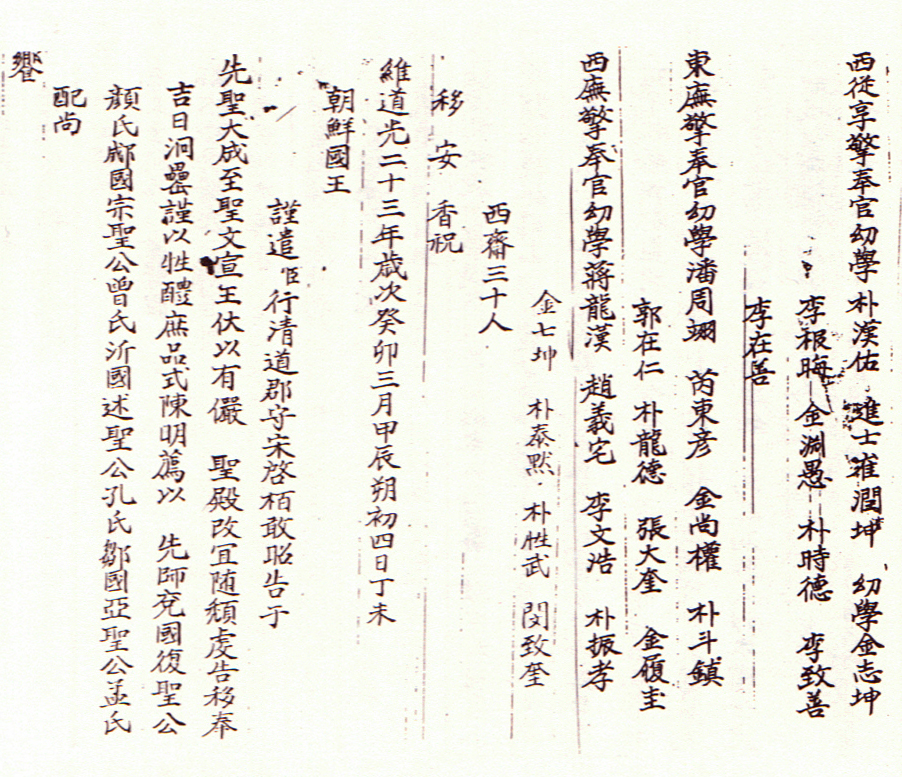 西從享擎奉官幼學朴漢佑 進士崔潤坤 幼學金志坤
李根晦 金淵愚 朴時德 李致善
李在善
東廡擎奉官幼學潘周翊 芮東彦 金尚權 朴斗鎮
郭在仁 朴龍德 張大奎 金履圭
西廡擎奉官幼學蔣龍漢 趙義宅 李文浩 朴振孝
金七坤 朴泰默 朴性武 閔致奎
西齋三十人
移安香祝
維道光二十三年歳次癸卯三月甲辰朔初四日丁未
朝鮮國王
謹遣臣行清道郡守宋啓栢敢昭告于
先聖大成至聖文宣王伏以有儼 聖殿改冝随頹虔告移奉
吉日洞罍謹以牲醴庶品式陳明薦以 先師兗國復聖公
顔氏郕國宗聖公曾氏沂國述聖公孔氏鄒國亞聖公孟氏
配尚
饗